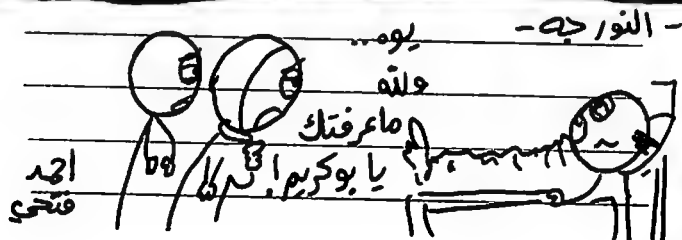 - النور جه -
يوه..
ولله
ماعرفتك
يا بوكريم!
احمد
فتحي